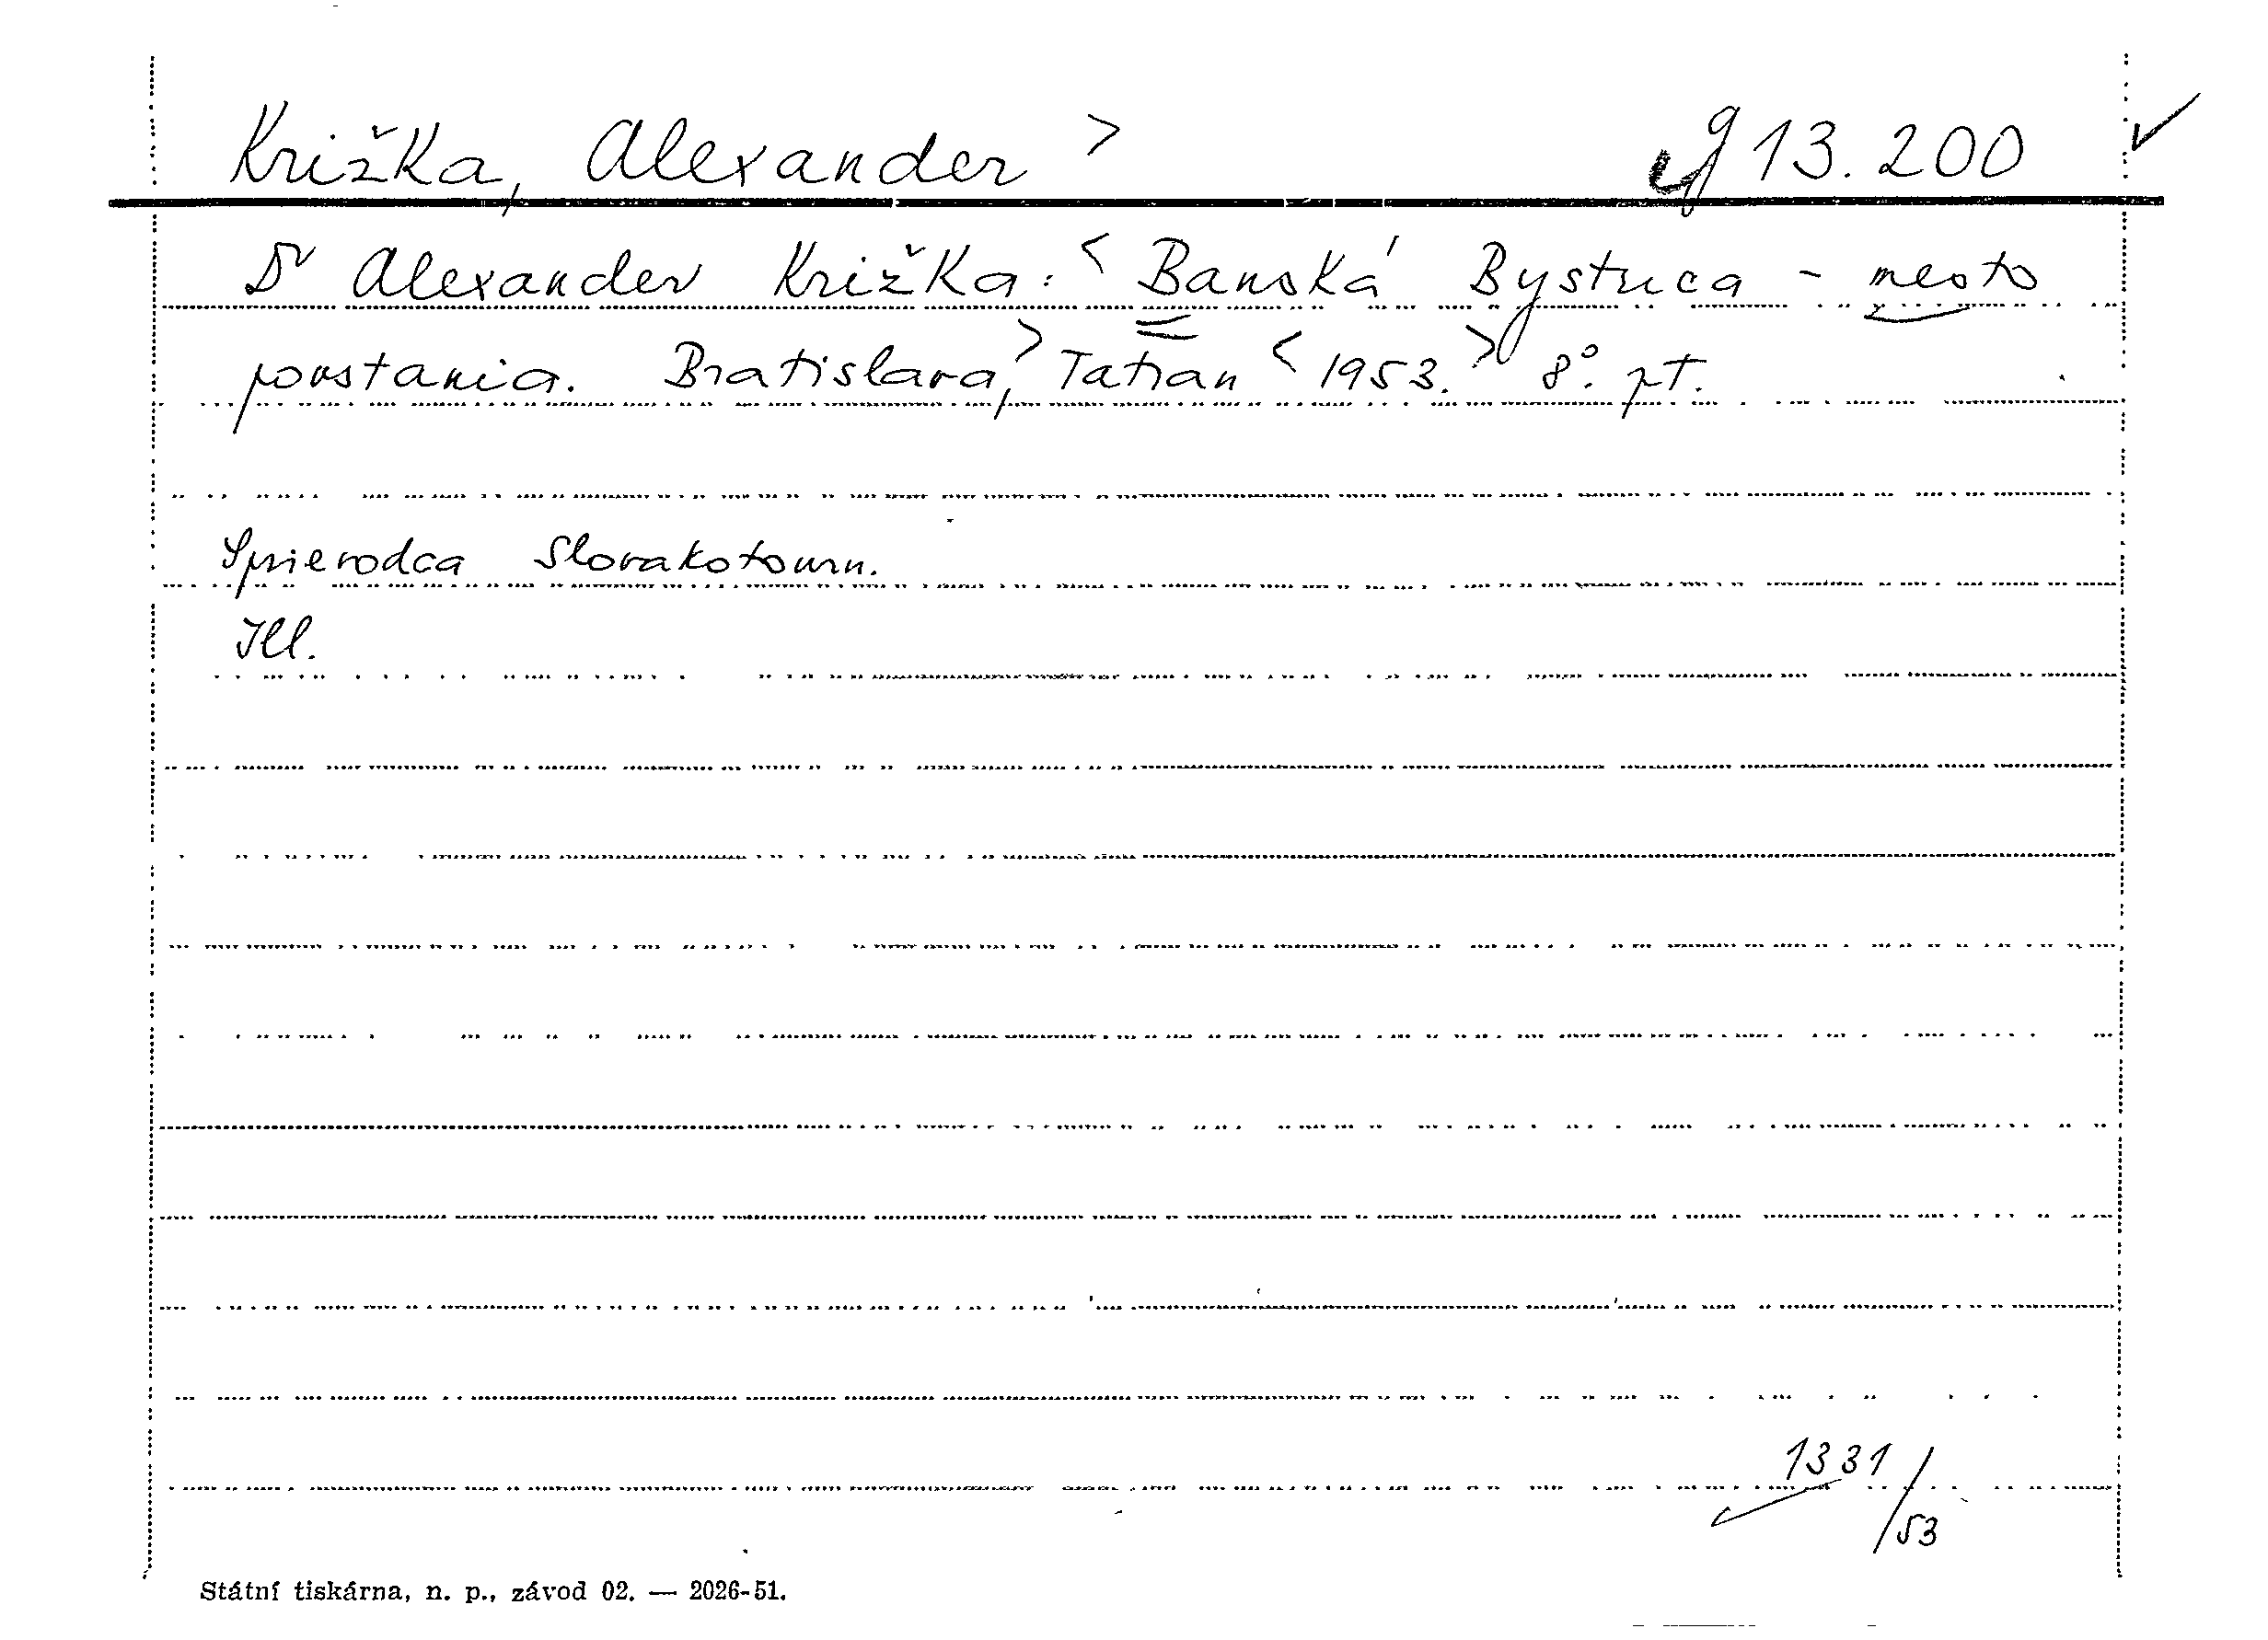 Križka, Alexander > g 13.200 ✓
Dr Alexander Križka: < Banská Bystrica - mesto
povstania. Bratislava, > Tatran < 1953. > 8°. pt.
Sprievodca Slovakotouru.
Ill.
1331/53
Státní tiskárna, n. p., závod 02. — 2026-51.